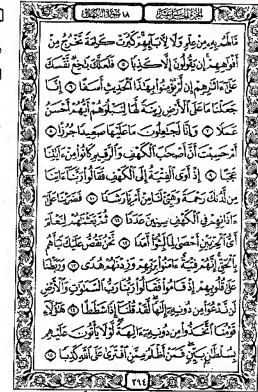 الجزء الخامس عشر ١٨ سورة الكهف
مَّا لَهُم بِهِ مِنْ عِلْمٍ وَلَا لِآبَائِهِمْ كَبُرَتْ كَلِمَةً تَخْرُجُ مِنْ
أَفْوَاهِهِمْ إِن يَقُولُونَ إِلَّا كَذِبًا ٥ فَلَعَلَّكَ بَاخِعٌ نَّفْسَكَ
عَلَىٰ آثَارِهِمْ إِن لَّمْ يُؤْمِنُوا بِهَٰذَا الْحَدِيثِ أَسَفًا ٦ إِنَّا
جَعَلْنَا مَا عَلَى الْأَرْضِ زِينَةً لَّهَا لِنَبْلُوَهُمْ أَيُّهُمْ أَحْسَنُ
عَمَلًا ٧ وَإِنَّا لَجَاعِلُونَ مَا عَلَيْهَا صَعِيدًا جُرُزًا ٨
أَمْ حَسِبْتَ أَنَّ أَصْحَابَ الْكَهْفِ وَالرَّقِيمِ كَانُوا مِنْ آيَاتِنَا
عَجَبًا ٩ إِذْ أَوَى الْفِتْيَةُ إِلَى الْكَهْفِ فَقَالُوا رَبَّنَا آتِنَا
مِن لَّدُنكَ رَحْمَةً وَهَيِّئْ لَنَا مِنْ أَمْرِنَا رَشَدًا ١٠ فَضَرَبْنَا عَلَىٰ
آذَانِهِمْ فِي الْكَهْفِ سِنِينَ عَدَدًا ١١ ثُمَّ بَعَثْنَاهُمْ لِنَعْلَمَ
أَيُّ الْحِزْبَيْنِ أَحْصَىٰ لِمَا لَبِثُوا أَمَدًا ١٢ نَّحْنُ نَقُصُّ عَلَيْكَ نَبَأَهُم
بِالْحَقِّ إِنَّهُمْ فِتْيَةٌ آمَنُوا بِرَبِّهِمْ وَزِدْنَاهُمْ هُدًى ١٣ وَرَبَطْنَا
عَلَىٰ قُلُوبِهِمْ إِذْ قَامُوا فَقَالُوا رَبُّنَا رَبُّ السَّمَاوَاتِ وَالْأَرْضِ
لَن نَّدْعُوَ مِن دُونِهِ إِلَٰهًا لَّقَدْ قُلْنَا إِذًا شَطَطًا ١٤ هَٰؤُلَاءِ
قَوْمُنَا اتَّخَذُوا مِن دُونِهِ آلِهَةً لَّوْلَا يَأْتُونَ عَلَيْهِم
بِسُلْطَانٍ بَيِّنٍ فَمَنْ أَظْلَمُ مِمَّنِ افْتَرَىٰ عَلَى اللَّهِ كَذِبًا ١٥
٢٩٤